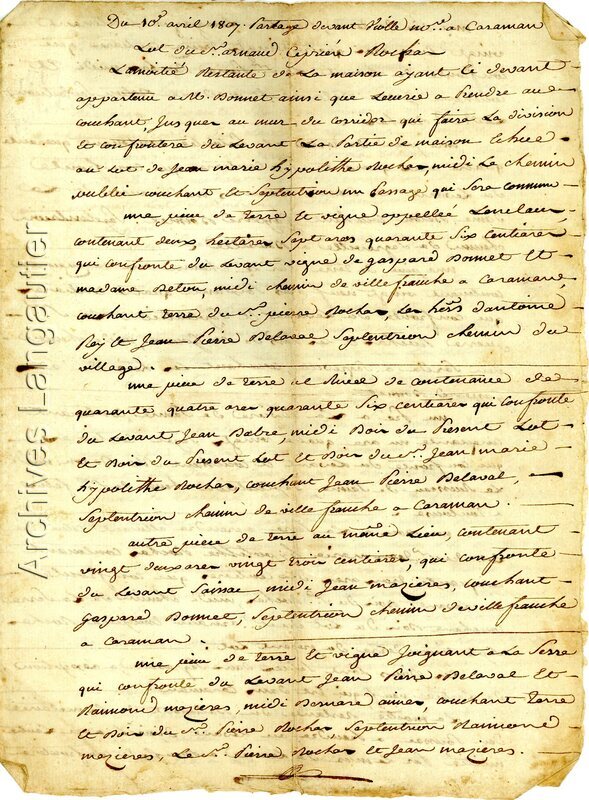 Du 10e. avril 1807. Partage devant Nolle nore. a Caraman
Lot du Sr. arnaud Ciprien Rochas
La moitié Restante de La maison ayant Ci devant
appartenu a M. Bonnet ainsi que Lecurie a Prendre au
couchant, Jusques au mur du corridor qui faira La division
Et confrontera du Levant La Partie de maison Echue
au Lot de Jean marie hypolithe Rochas, midi Le chemin
couchant Et Septentrion un Passage qui Sera commun
une piece de Terre Et vigne appellée
contenant deux hectares Sept ares quarante Six centiares
qui confronte du Levant vigne de gaspard Bonnet Et
madame Belou, midi chemin de villefranche a Caraman,
couchant Terre du Sr. pierre Rochas, Les hers. d'antoine
Rey Et Jean Pierre Delaval Septentrion chemin du
village.
une piece de Terre al de contenance de
quarante quatre ares quarante Six centiares qui confronte
du Levant Jean Babre, midi Bois du Present Lot
Et Bois du Present Lot Et Bois du Sr. Jean marie
hypolithe Rochas, couchant Jean Pierre Delaval,
Septentrion chemin de ville franche a Caraman.
autre piece de Terre au même Lieu, contenant
vingt deux ares vingt trois centiares, qui confronte
du Levant Saissac midi Jean mazieres, couchant
Gaspard Bonnet, Septentrion chemin de ville franche
a Caraman.
une piece de Terre Et vigne Joignant a La Serre
qui confronte du Levant Jean Pierre Delaval Et
Raimond mazieres, midi Bernard couchant Terre
Et Bois du Sr. Pierre Rochas Septentrion Raimond
mazieres, Le Sr. Pierre Rochas Et Jean mazieres.
Archives Langautier